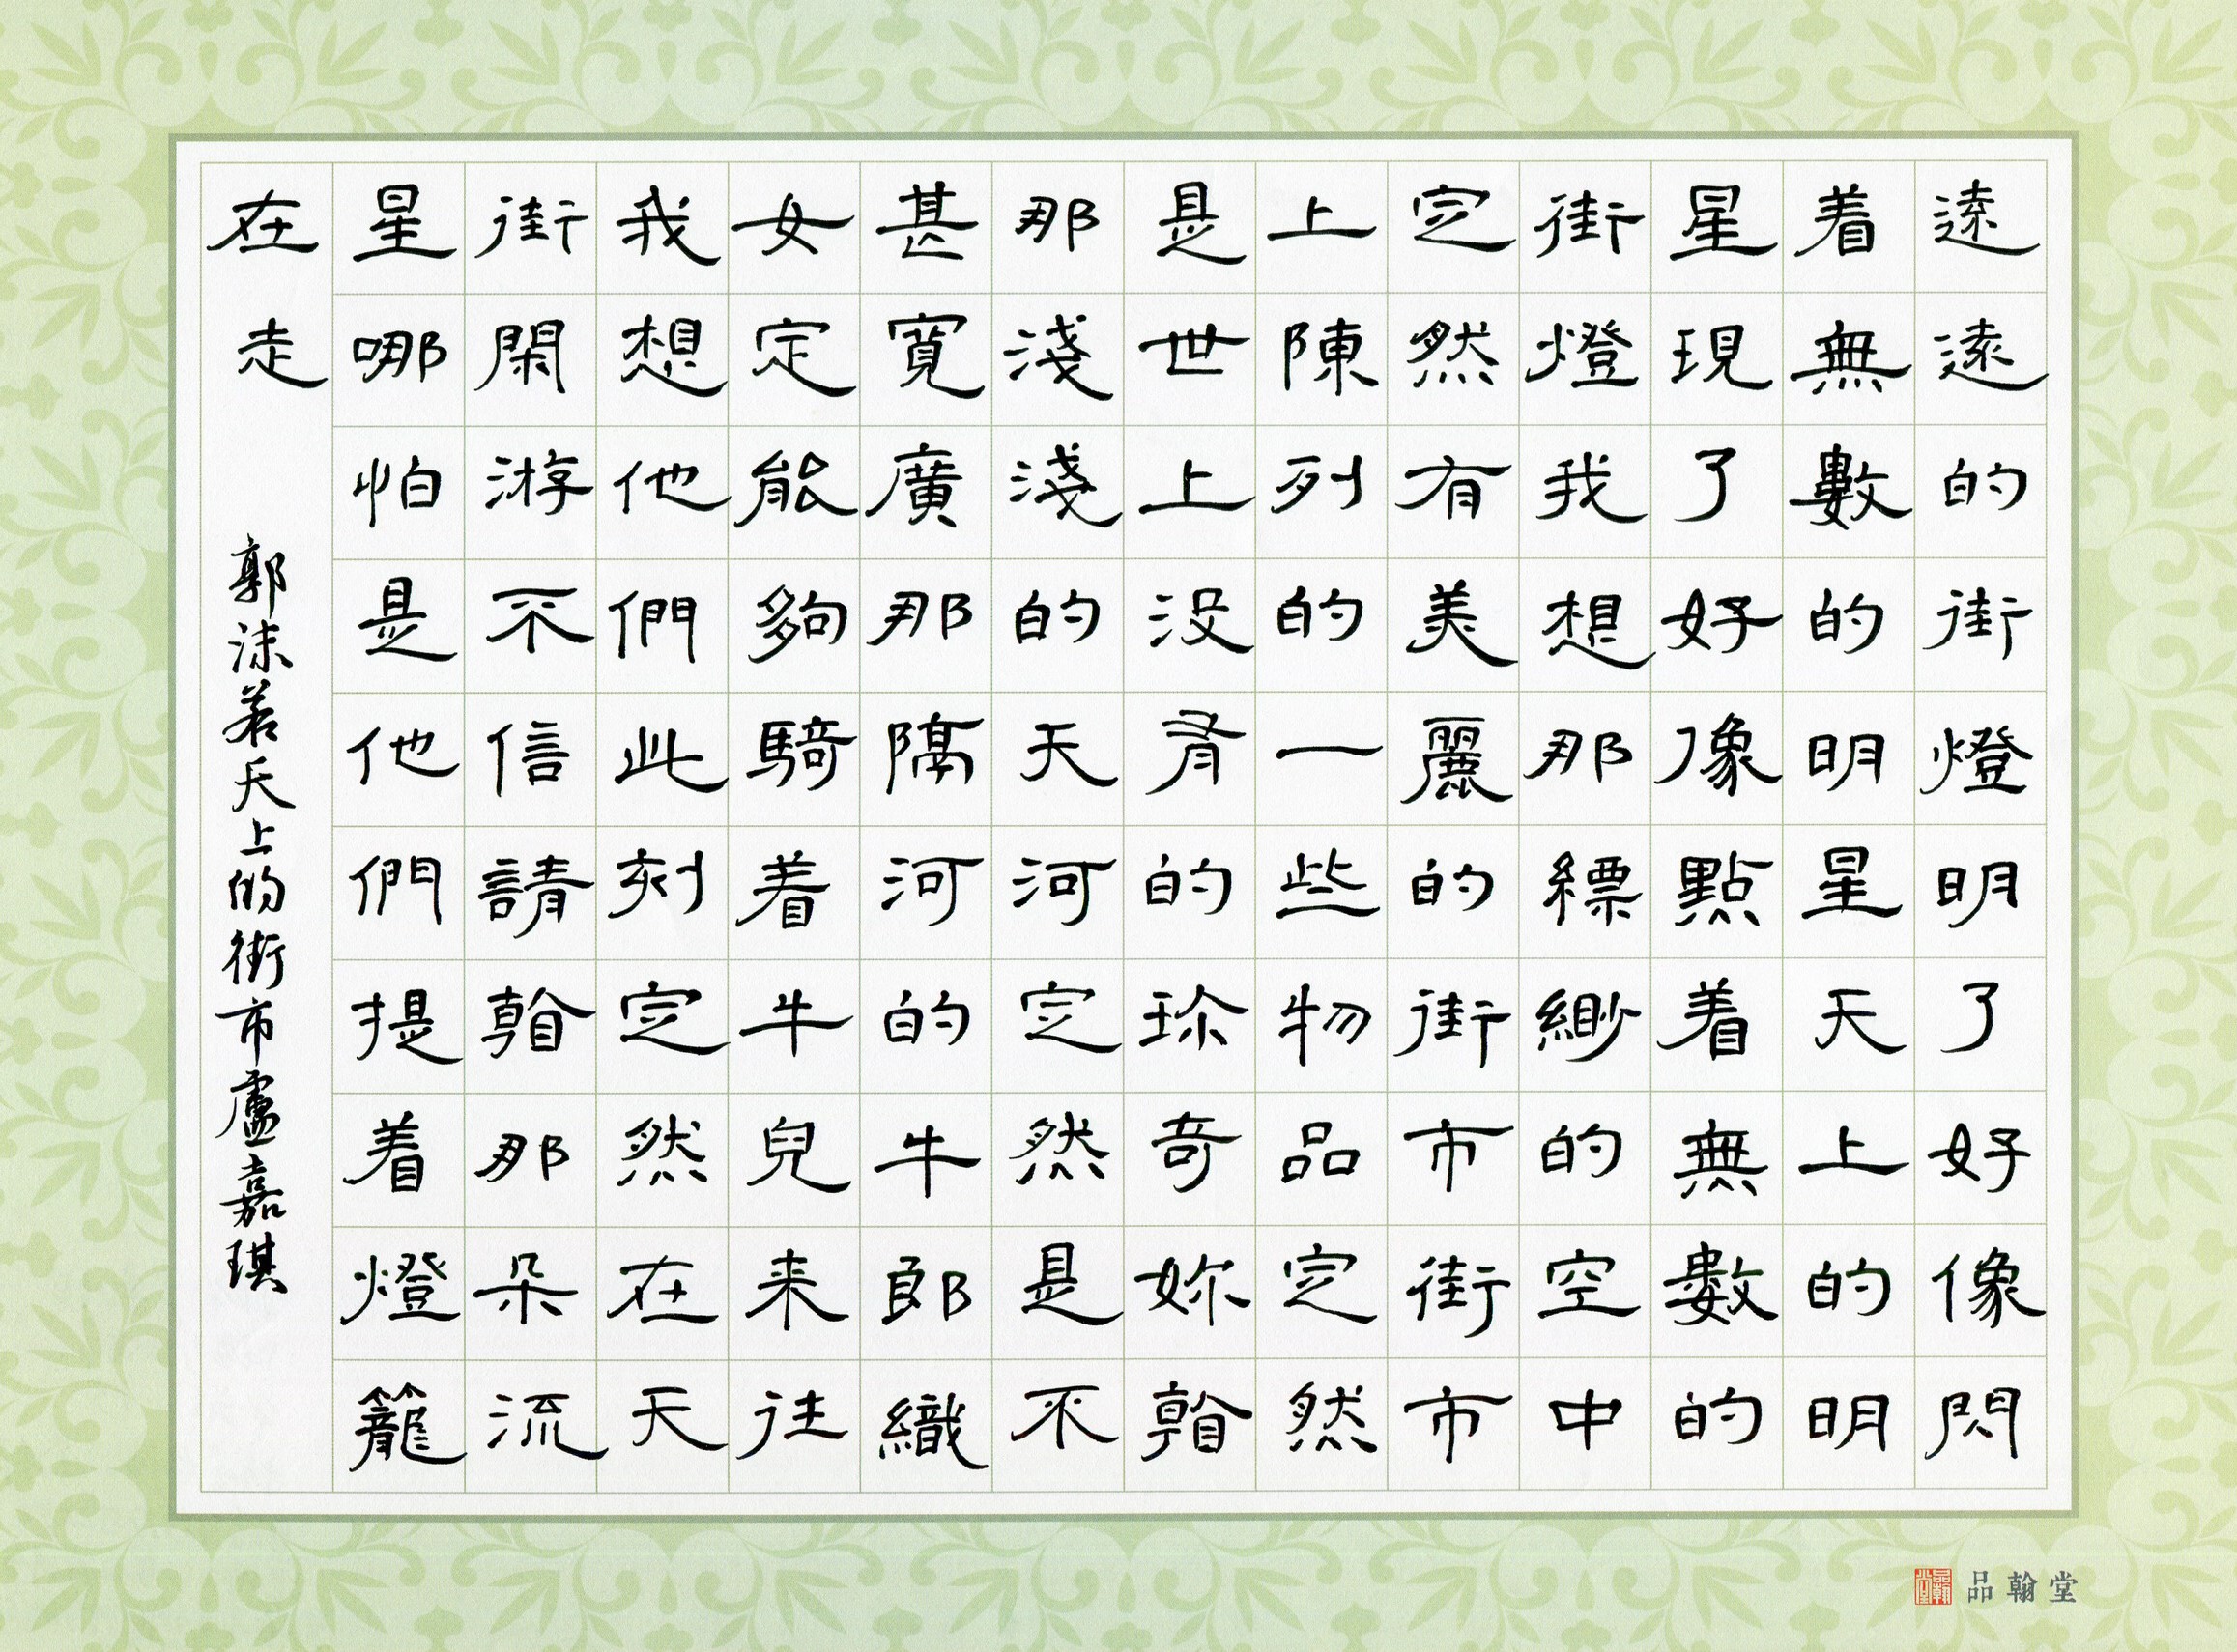 遠遠的街燈明了好像閃
着無數的明星天上的明
星現了好像點着無數的
街燈我想那縹緲的空中
定然有美麗的街市街市
上陳列的一些物品定然
是世上没有的珍奇妳看
那淺淺的天河定然是不
甚寬廣那隔河的牛郎織
女定能夠騎着牛兒来往
我想他們此刻定然在天
街閑游不信請看那朵流
星哪怕是他們提着燈籠
在走
郭沫若天上的街市盧嘉琪
品翰堂